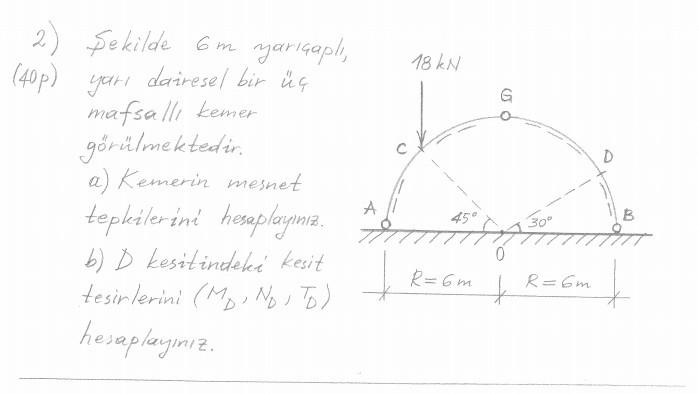 2) Şekilde 6 m yarıçaplı,
(40p) yarı dairesel bir üç
mafsallı kemer
görülmektedir.
a) Kemerin mesnet
tepkilerini hesaplayınız.
b) D kesitindeki kesit
tesirlerini (M_D, N_D, T_D)
hesaplayınız.
18 kN
G
C
D
A
45°
30°
B
O
R=6m
R=6m